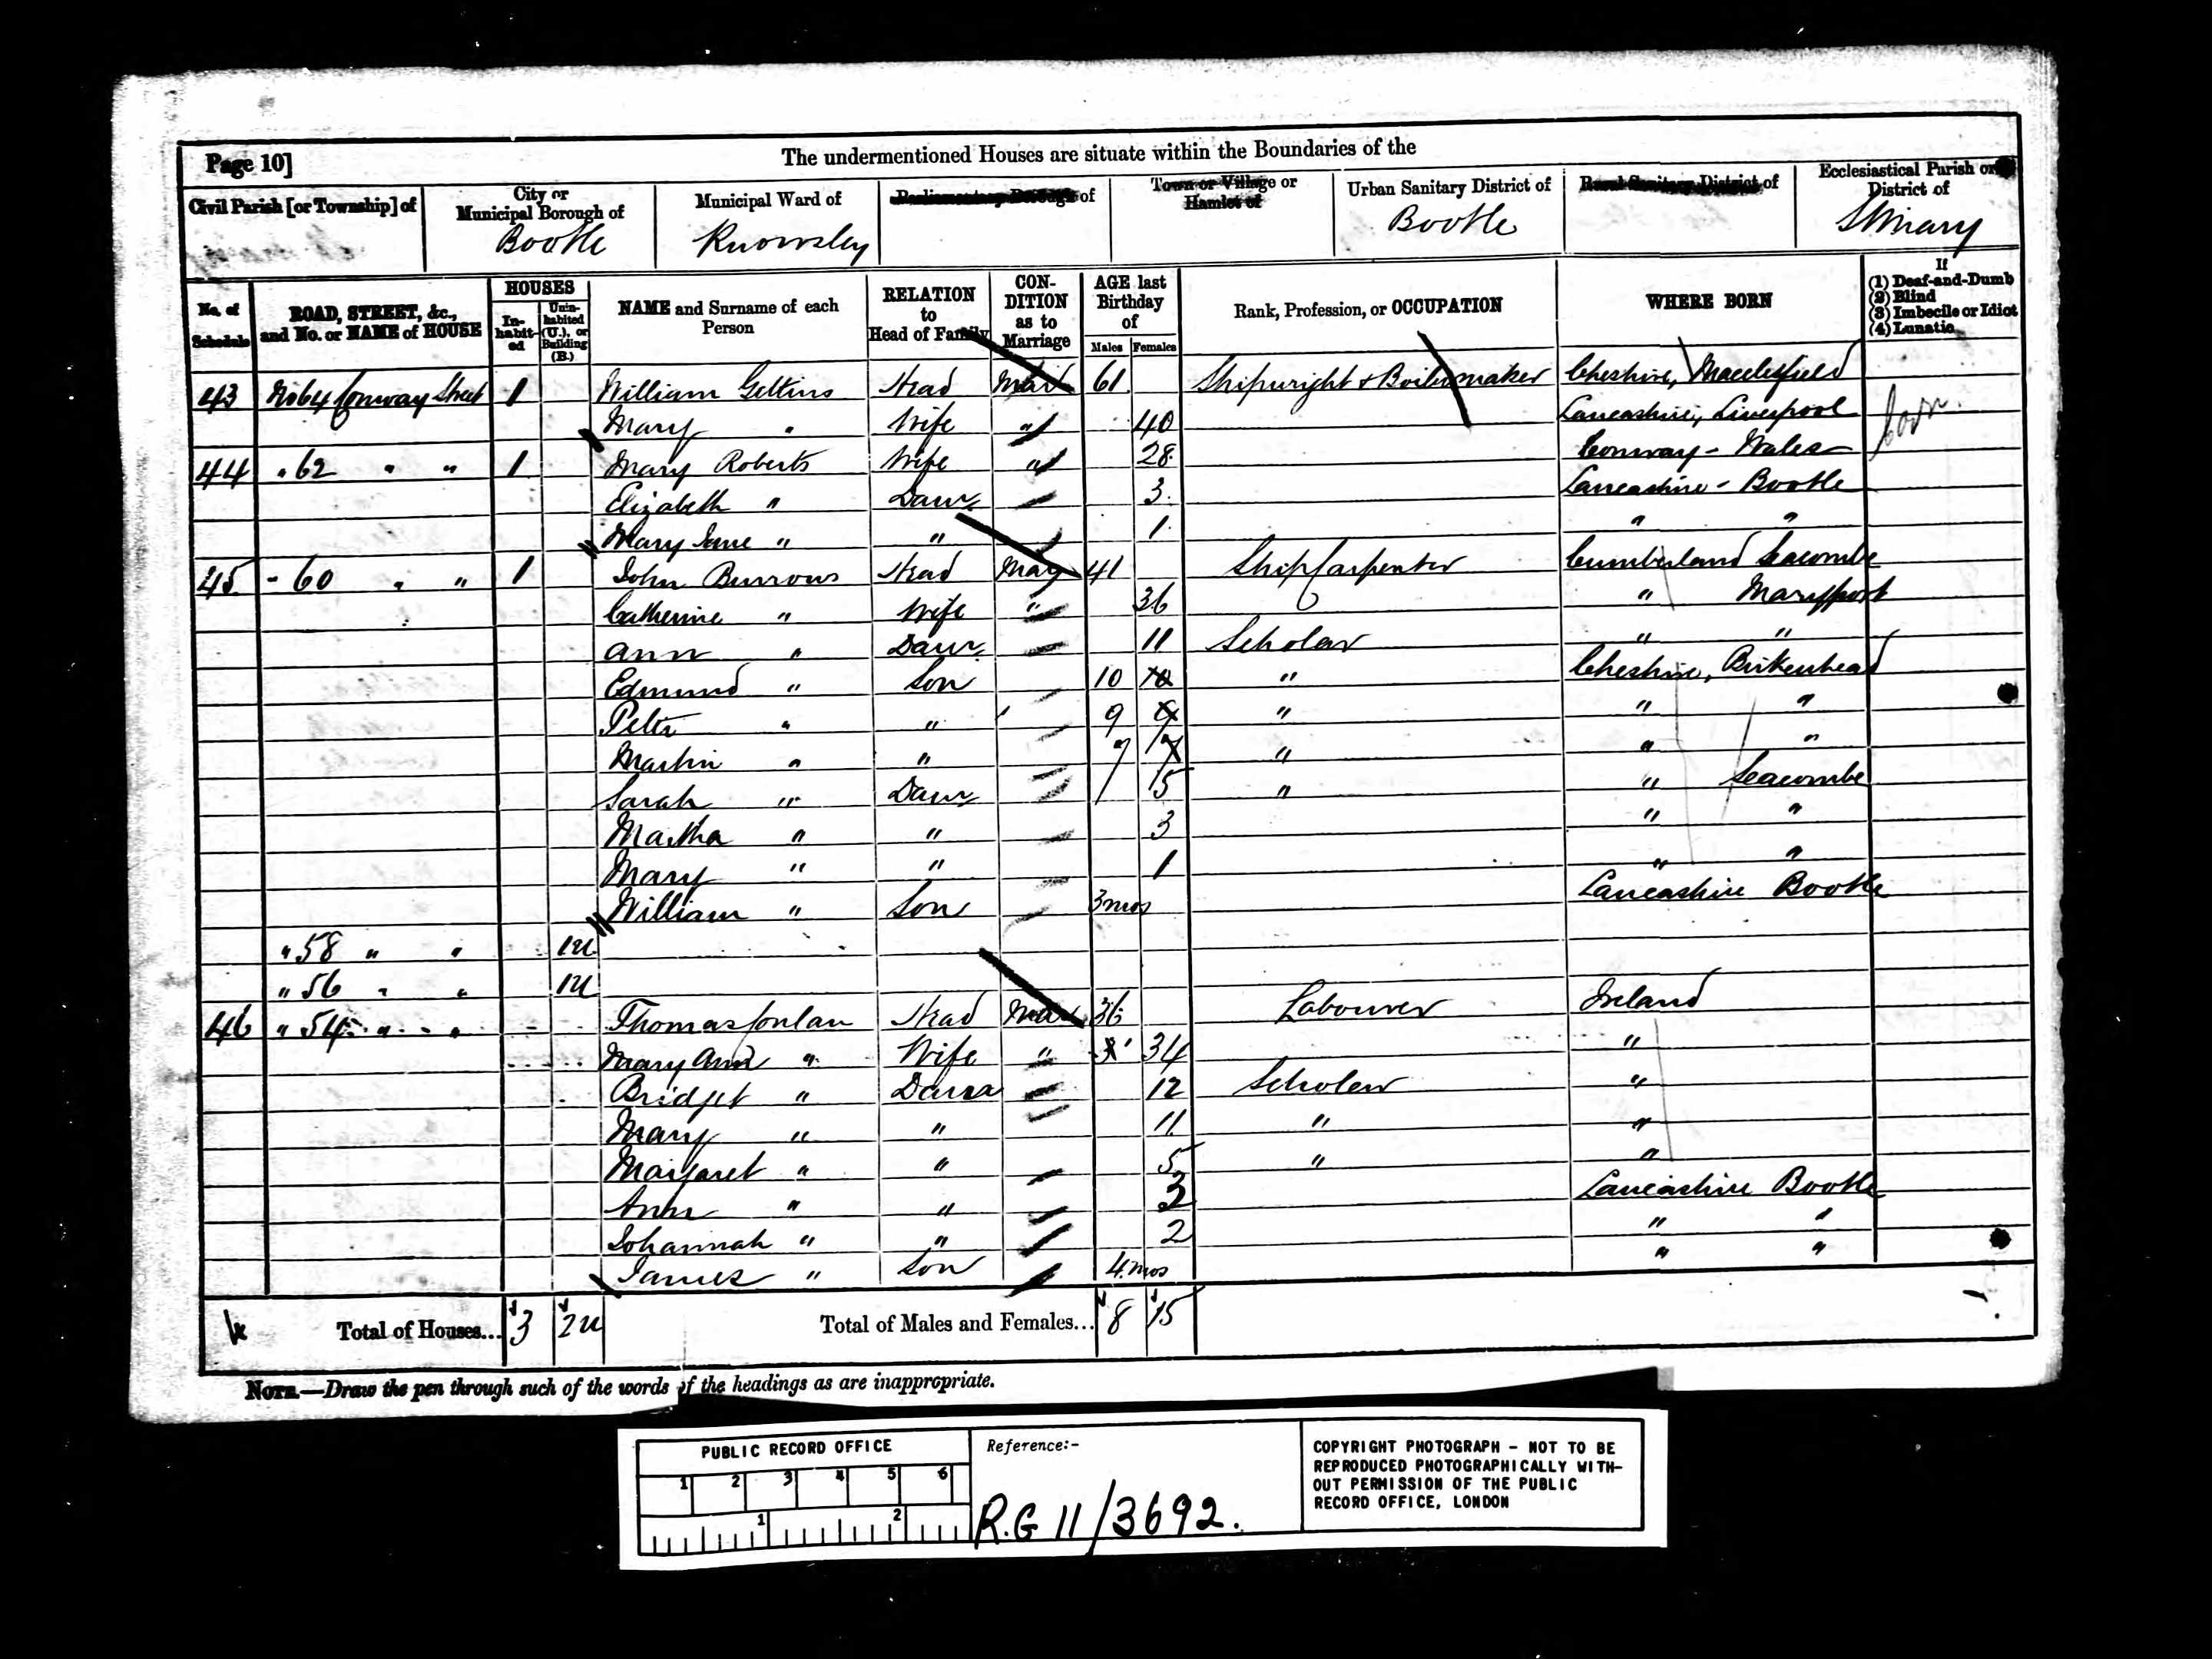 Page 10]
The undermentioned Houses are situate within the Boundaries of the
Civil Parish [or Township] of
City or Municipal Borough of
Bootle
Municipal Ward of
Knowsley
Parliamentary Borough of
Town or Village or Hamlet of
Urban Sanitary District of
Bootle
Rural Sanitary District of
Ecclesiastical Parish or District of
St Mary
No. of Schedule
ROAD, STREET, &c., and No. or NAME of HOUSE
HOUSES
In-habit-ed
Unin-habited (U.), or Building (B.)
NAME and Surname of each Person
RELATION to Head of Family
CON-DITION as to Marriage
AGE last Birthday of
Males Females
Rank, Profession, or OCCUPATION
WHERE BORN
If
(1) Deaf-and-Dumb
(2) Blind
(3) Imbecile or Idiot
(4) Lunatic
43 No 64 Conway Street 1 William Gittins Head Mar 61 Shipwright & Boilermaker Cheshire, Macclesfield
Mary " Wife " 40 Lancashire, Liverpool
44 " 62 " " 1 Mary Roberts Wife " 28 Conway - Wales
Elizabeth " Daur 3 Lancashire - Bootle
Mary Jane " " 1 " "
45 " 60 " " 1 John Burrows Head Mar 41 Ship Carpenter Cumberland Seacombe
Catherine " Wife " 36 " Maryport
Ann " Daur 11 Scholar " "
Edmund " Son 10 10 " Cheshire, Birkenhead
Peter " " 9 9 " " "
Martin " " 7 7 " " "
Sarah " Daur 5 " " Seacombe
Martha " " 3 " "
Mary " " 1 " "
William " Son 3 mos Lancashire Bootle
" 58 " " 1U
" 56 " " 1U
46 " 54 " " Thomas Conlan Head Mar 36 Labourer Ireland
Mary Ann " Wife " 34 "
Bridget " Daur 12 Scholar "
Mary " " 11 " "
Margaret " " 5 " "
Ann " " 3 Lancashire Bootle
Johannah " " 2 " "
James " Son 4 mos " "
Total of Houses... 3 2U Total of Males and Females... 8 15
NOTE.—Draw the pen through such of the words of the headings as are inappropriate.
PUBLIC RECORD OFFICE
1 2 3 4 5 6
1 2
Reference:-
R.G 11/3692.
COPYRIGHT PHOTOGRAPH - NOT TO BE
REPRODUCED PHOTOGRAPHICALLY WITH-
OUT PERMISSION OF THE PUBLIC
RECORD OFFICE, LONDON